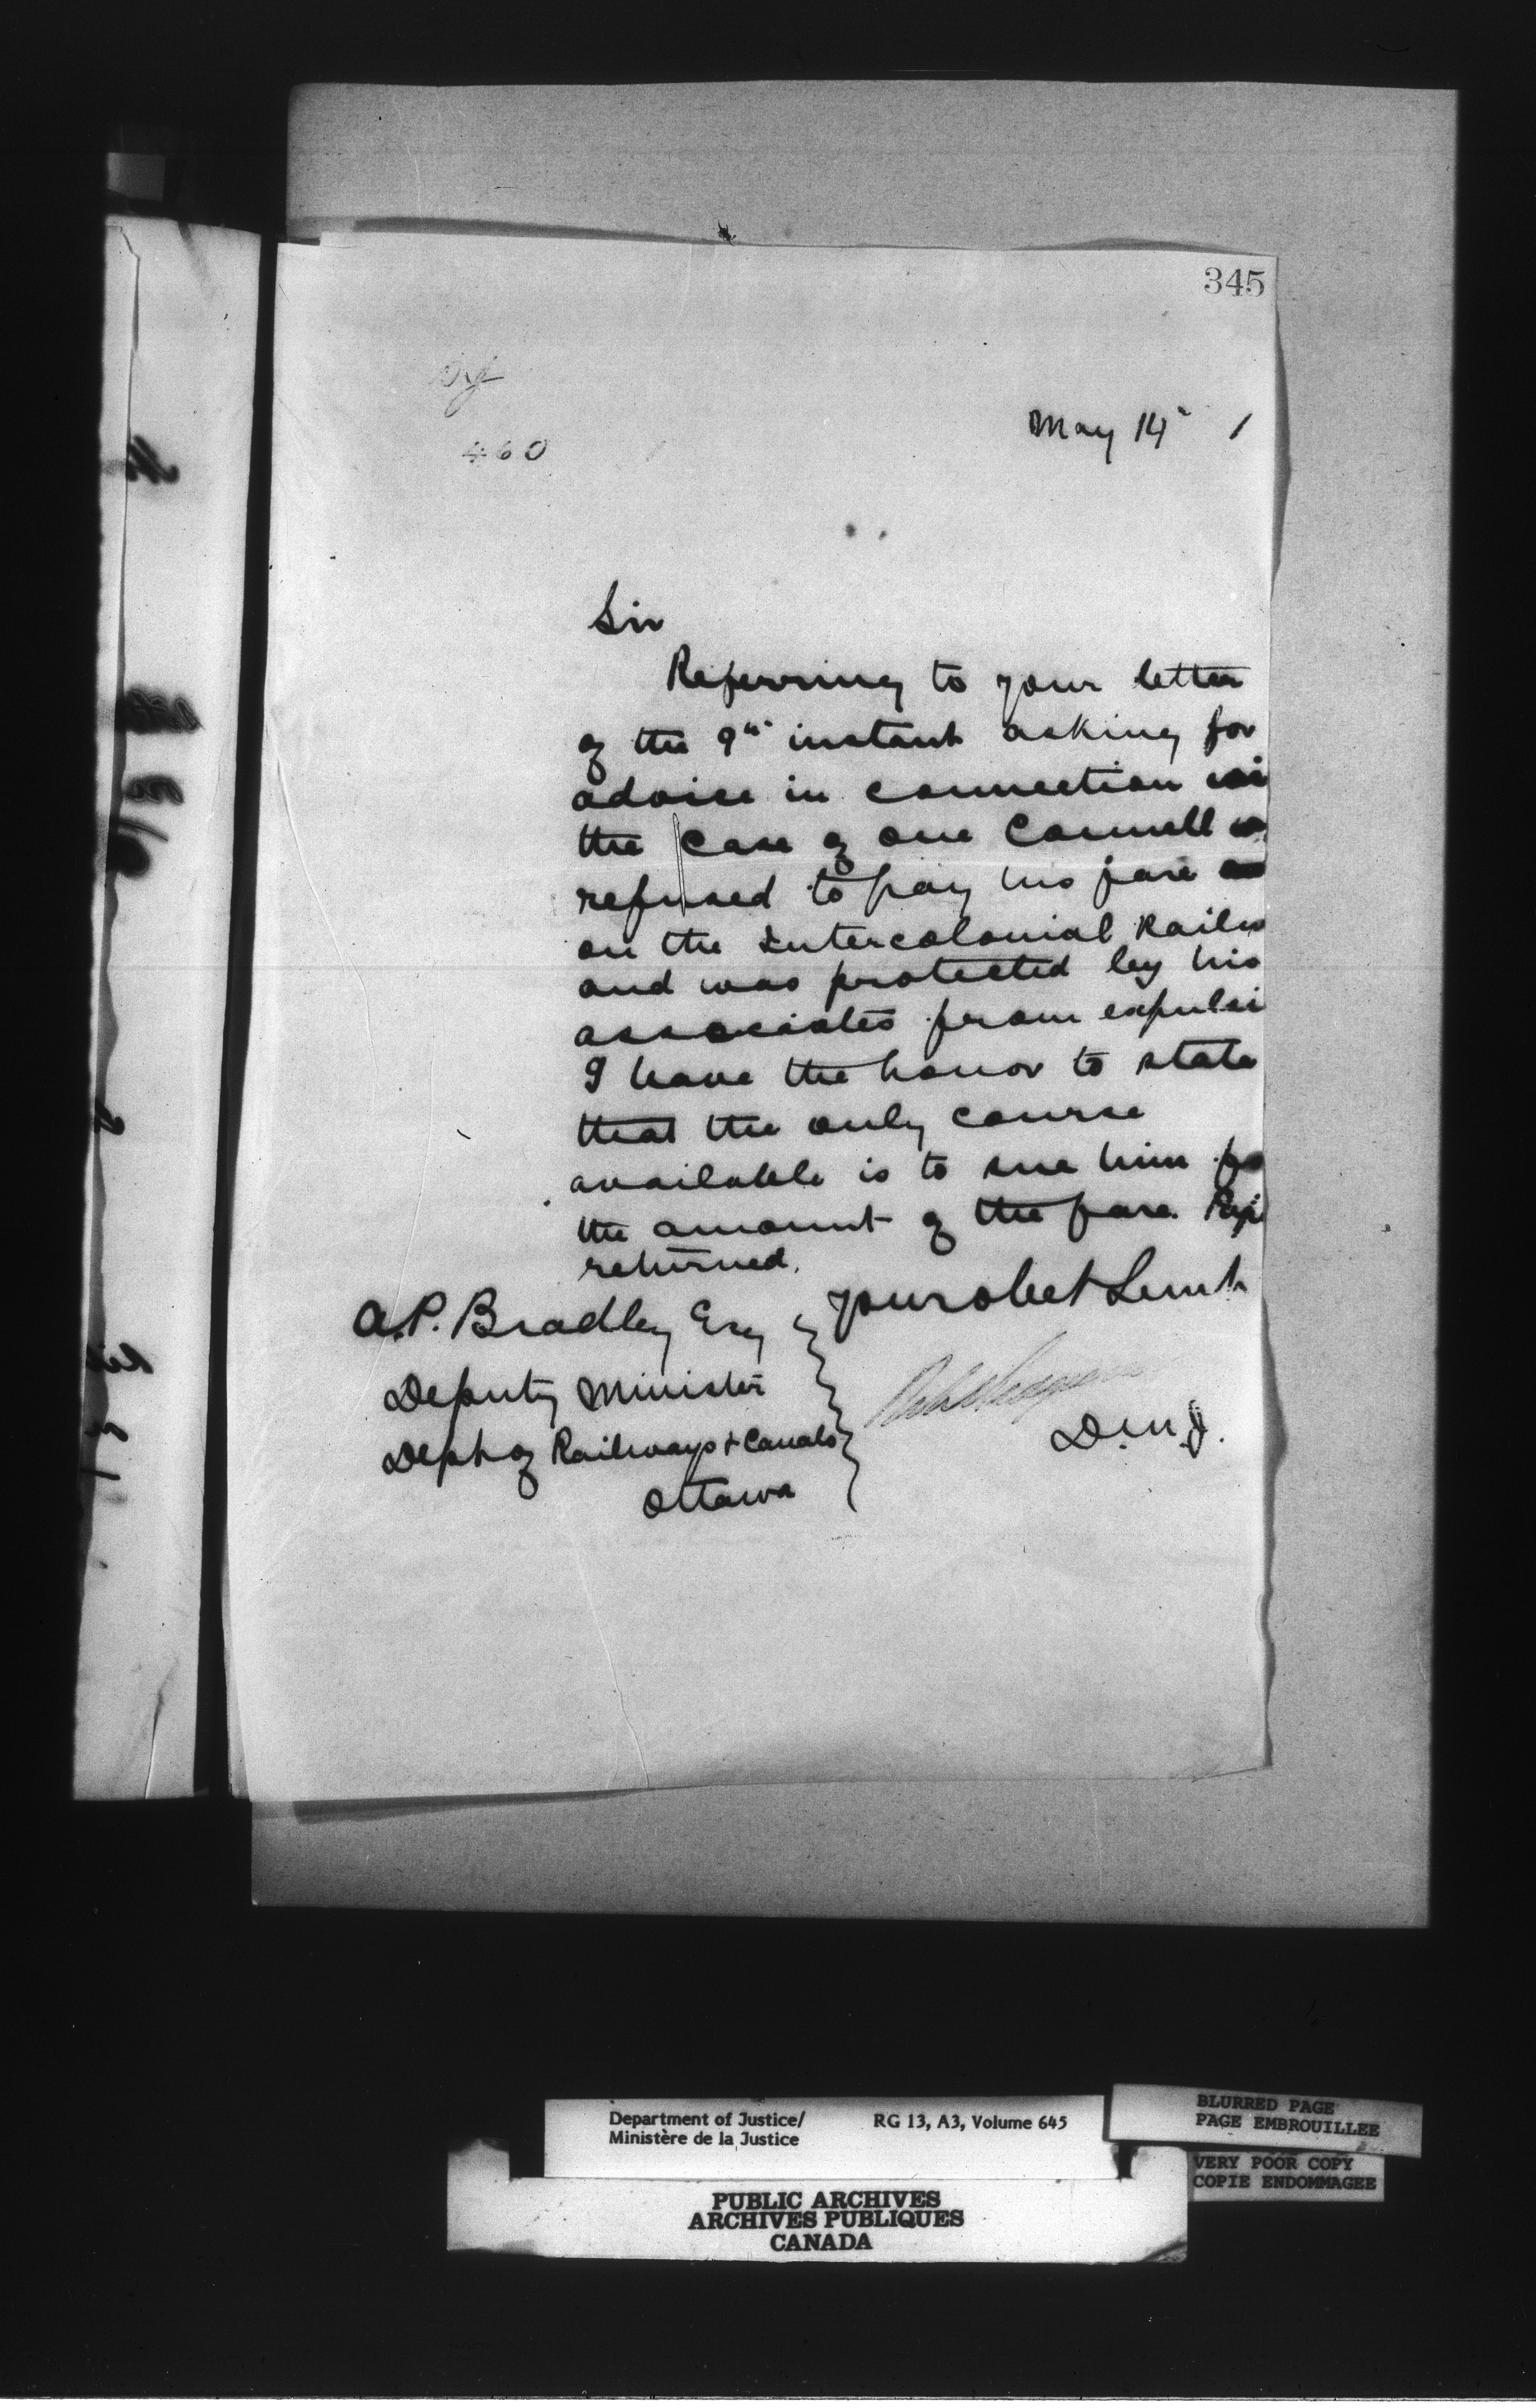 345
460
May 14th 1
Sir
Referring to your letter
of the 9th instant asking for
advice in connection wi
the case of one Connell w
refused to pay his fare
on the Intercolonial Railw
and was protected by his
associates from expulsi
I have the honor to state
that the only course
available is to sue him fo
the amount of the fare.
returned.
Your obet Servt
A.P. Bradley Esq
Deputy Minister
Dept of Railways & Canals
Ottawa
D.M.J.
Department of Justice/
Ministère de la Justice
RG 13, A3, Volume 645
BLURRED PAGE
PAGE EMBROUILLEE
VERY POOR COPY
COPIE ENDOMMAGEE
PUBLIC ARCHIVES
ARCHIVES PUBLIQUES
CANADA